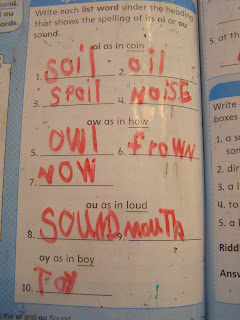 Write each list word under the heading
that shows the spelling of its oi or ou
sound.
oi as in coin
1. soil 2. oil
3. spoil 4. NOISE
ow as in how
5. OWl 6. frOWN
7. NOW
ou as in loud
8. SOUND 9. mouth
oy as in boy
10. Toy
the oi and ou Sound
5. at th
Write
boxes
1. a s
2. dir
3. a l
4. to
5. a
Ridd
Answ
ou
ords.